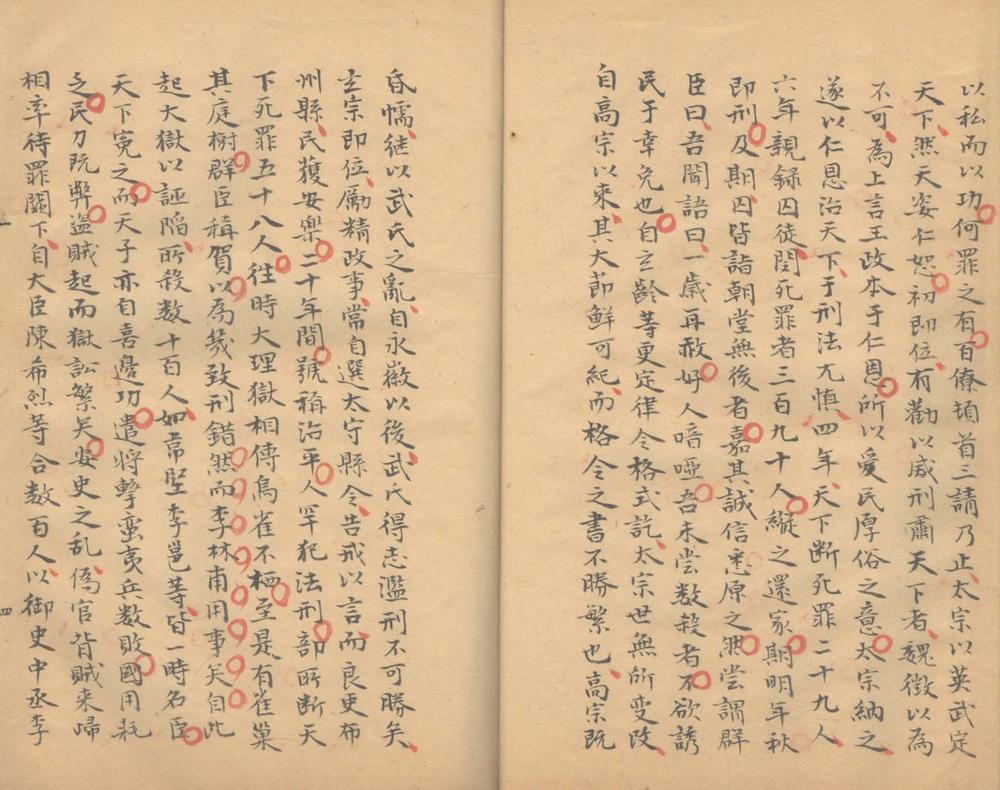 以私而以功何罪之有百僚頓首三請乃止太宗以英武定
天下然天姿仁恕初即位有勸以威刑肅天下者魏徵以為
不可為上言王政本于仁恩所以愛民厚俗之意太宗納之
遂以仁恩治天下于刑法尤慎四年天下断死罪二十九人
六年親録囚徒閔死罪者三百九十人縱之還家期明年秋
即刑及期囚皆詣朝堂無後者嘉其誠信悉原之然嘗謂群
臣曰吾聞語曰一歲再赦好人喑啞吾未嘗数赦者不欲誘
民于幸免也自玄齡等更定律令格式訖太宗世無所变改
自高宗以来其大節鮮可紀而格令之書不勝繁也高宗既
昏懦继以武氏之亂自永徽以後武氏得志濫刑不可勝矣
玄宗即位厲精政事常自選太守縣令告戒以言而良吏布
州縣民獲安樂二十年間號稱治平人罕犯法刑部所断天
下死罪五十八人往時大理獄相傳鳥雀不栖至是有雀巢
其庭樹群臣稱賀以為幾致刑錯然而李林甫用事矣自此
起大獄以誣陷所殺数十百人如韋堅李邕等皆一時名臣
天下寃之而天子亦自喜邊功遣将擊蛮夷兵数敗國用耗
乏民力既弊盜賊起而獄訟繁矣安史之乱偽官背賊来歸
相率待罪闕下自大臣陳希烈等合数百人以御史中丞李